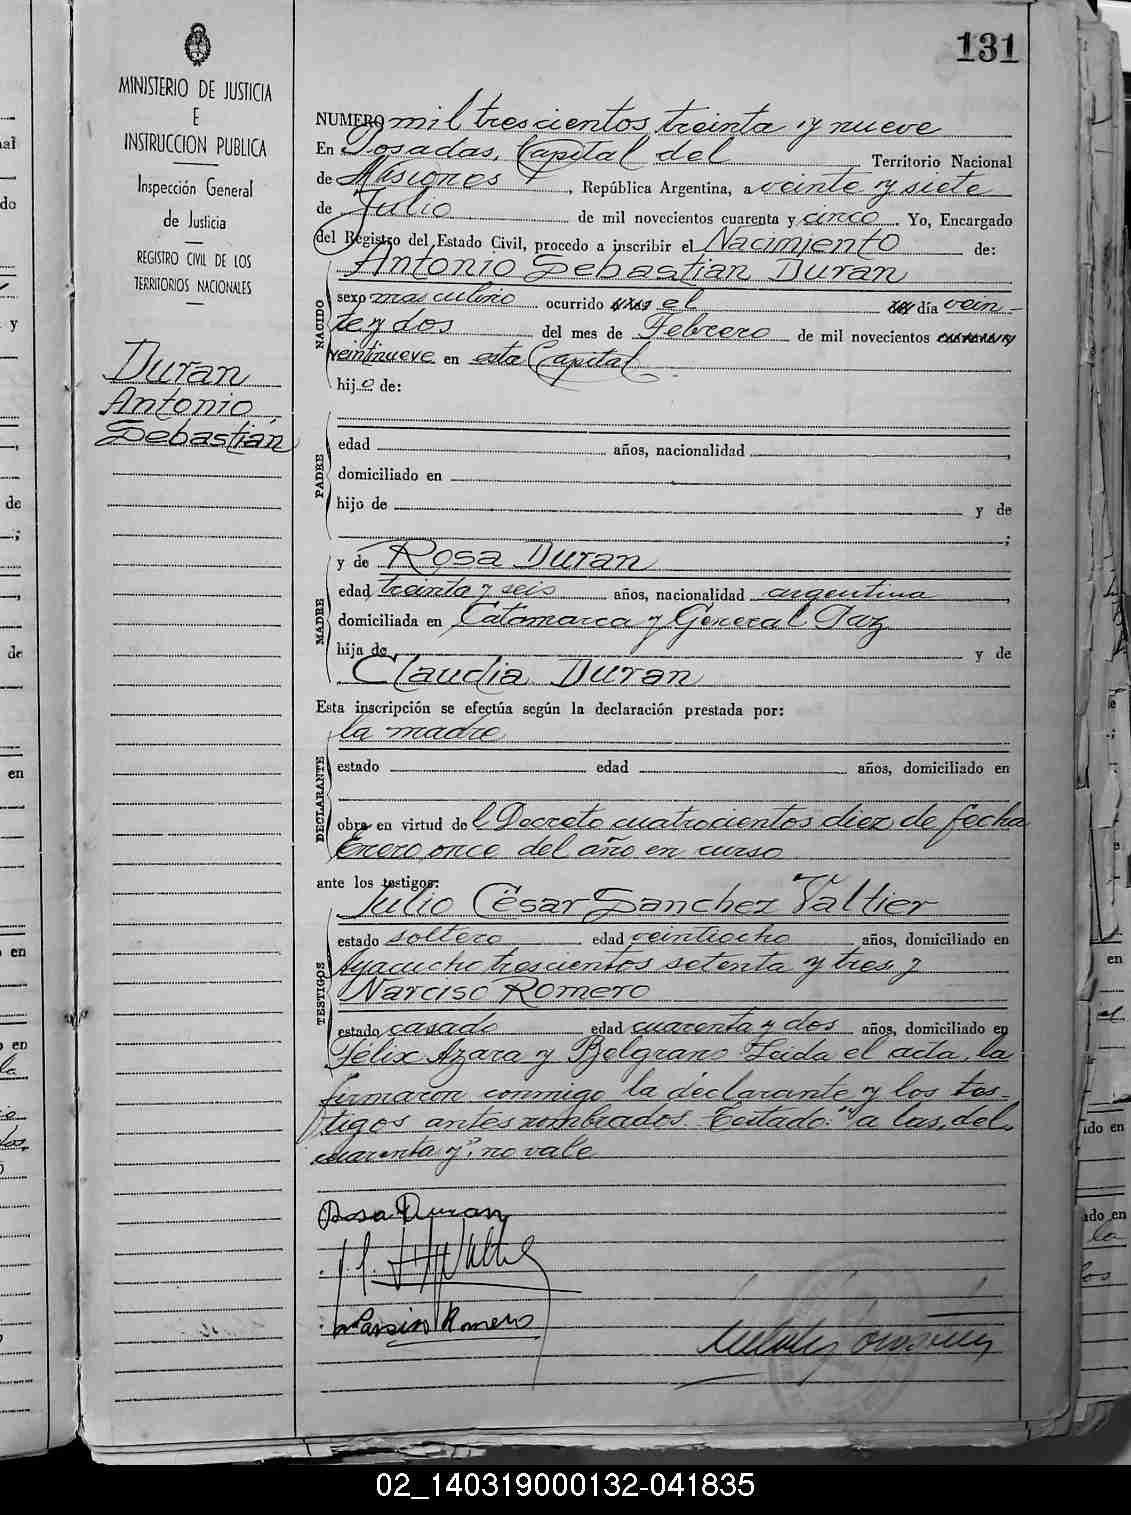 131
MINISTERIO DE JUSTICIA
E
INSTRUCCION PUBLICA
Inspección General
de Justicia
REGISTRO CIVIL DE LOS
TERRITORIOS NACIONALES
Duran
Antonio
Sebastián
NUMERO mil trescientos treinta y nueve
En Posadas, Capital del Territorio Nacional
de Misiones, República Argentina, a veinte y siete
de Julio de mil novecientos cuarenta y cinco. Yo, Encargado
del Registro del Estado Civil, procedo a inscribir el Nacimiento de:
Antonio Sebastian Duran
NACIDO
sexo masculino ocurrido a las el del día vein-
te y dos del mes de Febrero de mil novecientos cuarenta y
veintinueve en esta Capital
hijo de:
PADRE
edad años, nacionalidad ,
domiciliado en
hijo de y de
;
MADRE
y de Rosa Duran
edad treinta y seis años, nacionalidad argentina ,
domiciliada en Catamarca y General Paz
hija de y de
Claudia Duran
Esta inscripción se efectúa según la declaración prestada por:
la madre
DECLARANTE
estado edad años, domiciliado en
obra en virtud del Decreto cuatrocientos diez de fecha
Enero once del año en curso
ante los testigos:
Julio César Sanchez Valtier
TESTIGOS
estado soltero edad veintiocho años, domiciliado en
Ayacucho trescientos setenta y tres y
Narciso Romero
estado casado edad cuarenta y dos años, domiciliado en
Félix Azara y Belgrano Leida el acta, la
firmaron conmigo la declarante y los tes-
tigos antes nombrados. Testado: "a las, del,
cuarenta y", no vale
Rosa Duran
Narciso Romero
02_140319000132-041835